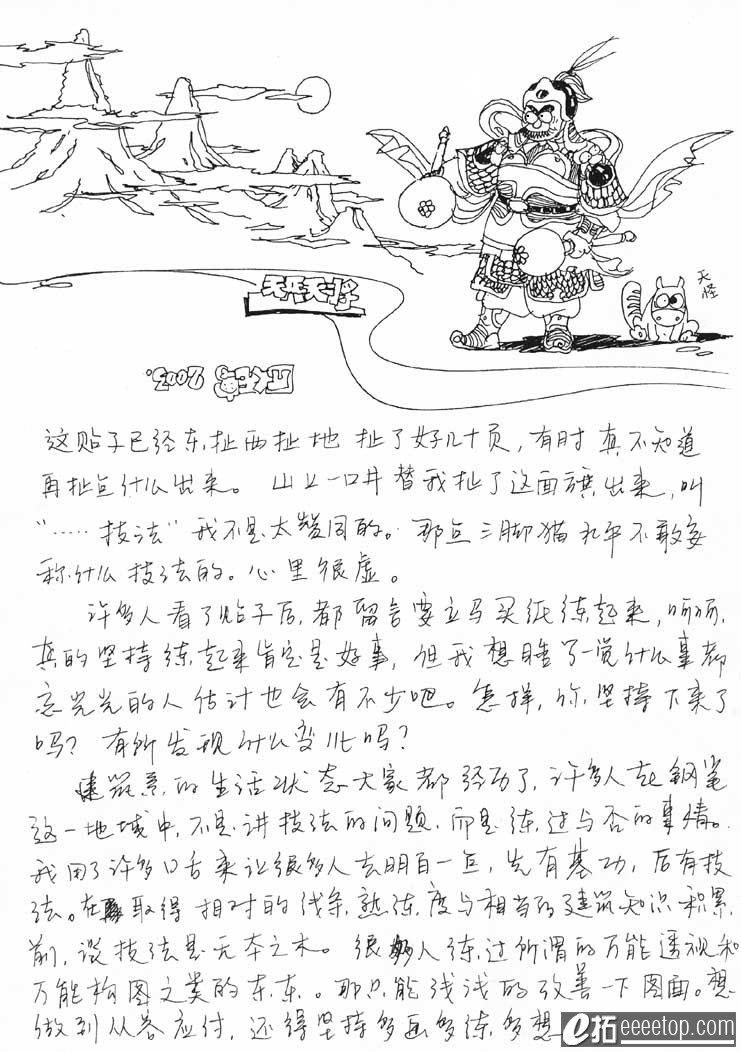 天兵天将
天怪
2003.
这贴子已经东扯西扯地 扯了好几十页,有时真不知道
再扯点什么出来。山上一口井替我扯了这面旗出来,叫
“……技法”我不是太赞同的。那点三脚猫 水平不敢妄
称什么技法的。心里很虚。
许多人看了贴子后,都留言要立马买纸练起来,呵呵,
真的坚持练起来肯定是好事,但我想睡了一觉什么事都
忘光光的人估计也会有不少吧。怎样,你坚持下来了
吗?有所发现什么变化吗?
建筑系的生活状态大家都经历了,许多人在钢笔
这一地域中,不是讲技法的问题,而是练过与否的事情。
我用了许多口舌来让很多人去明白一点,先有基功,后有技
法。在取得相对的线条熟练度与相当的建筑知识积累
前,谈技法是无本之木。很多人练过所谓的万能透视和
万能构图之类的东东。那只能浅浅的改善一下图面。想
做到从容应付,还得坚持多画多练多想
e拓 eeeetop.com